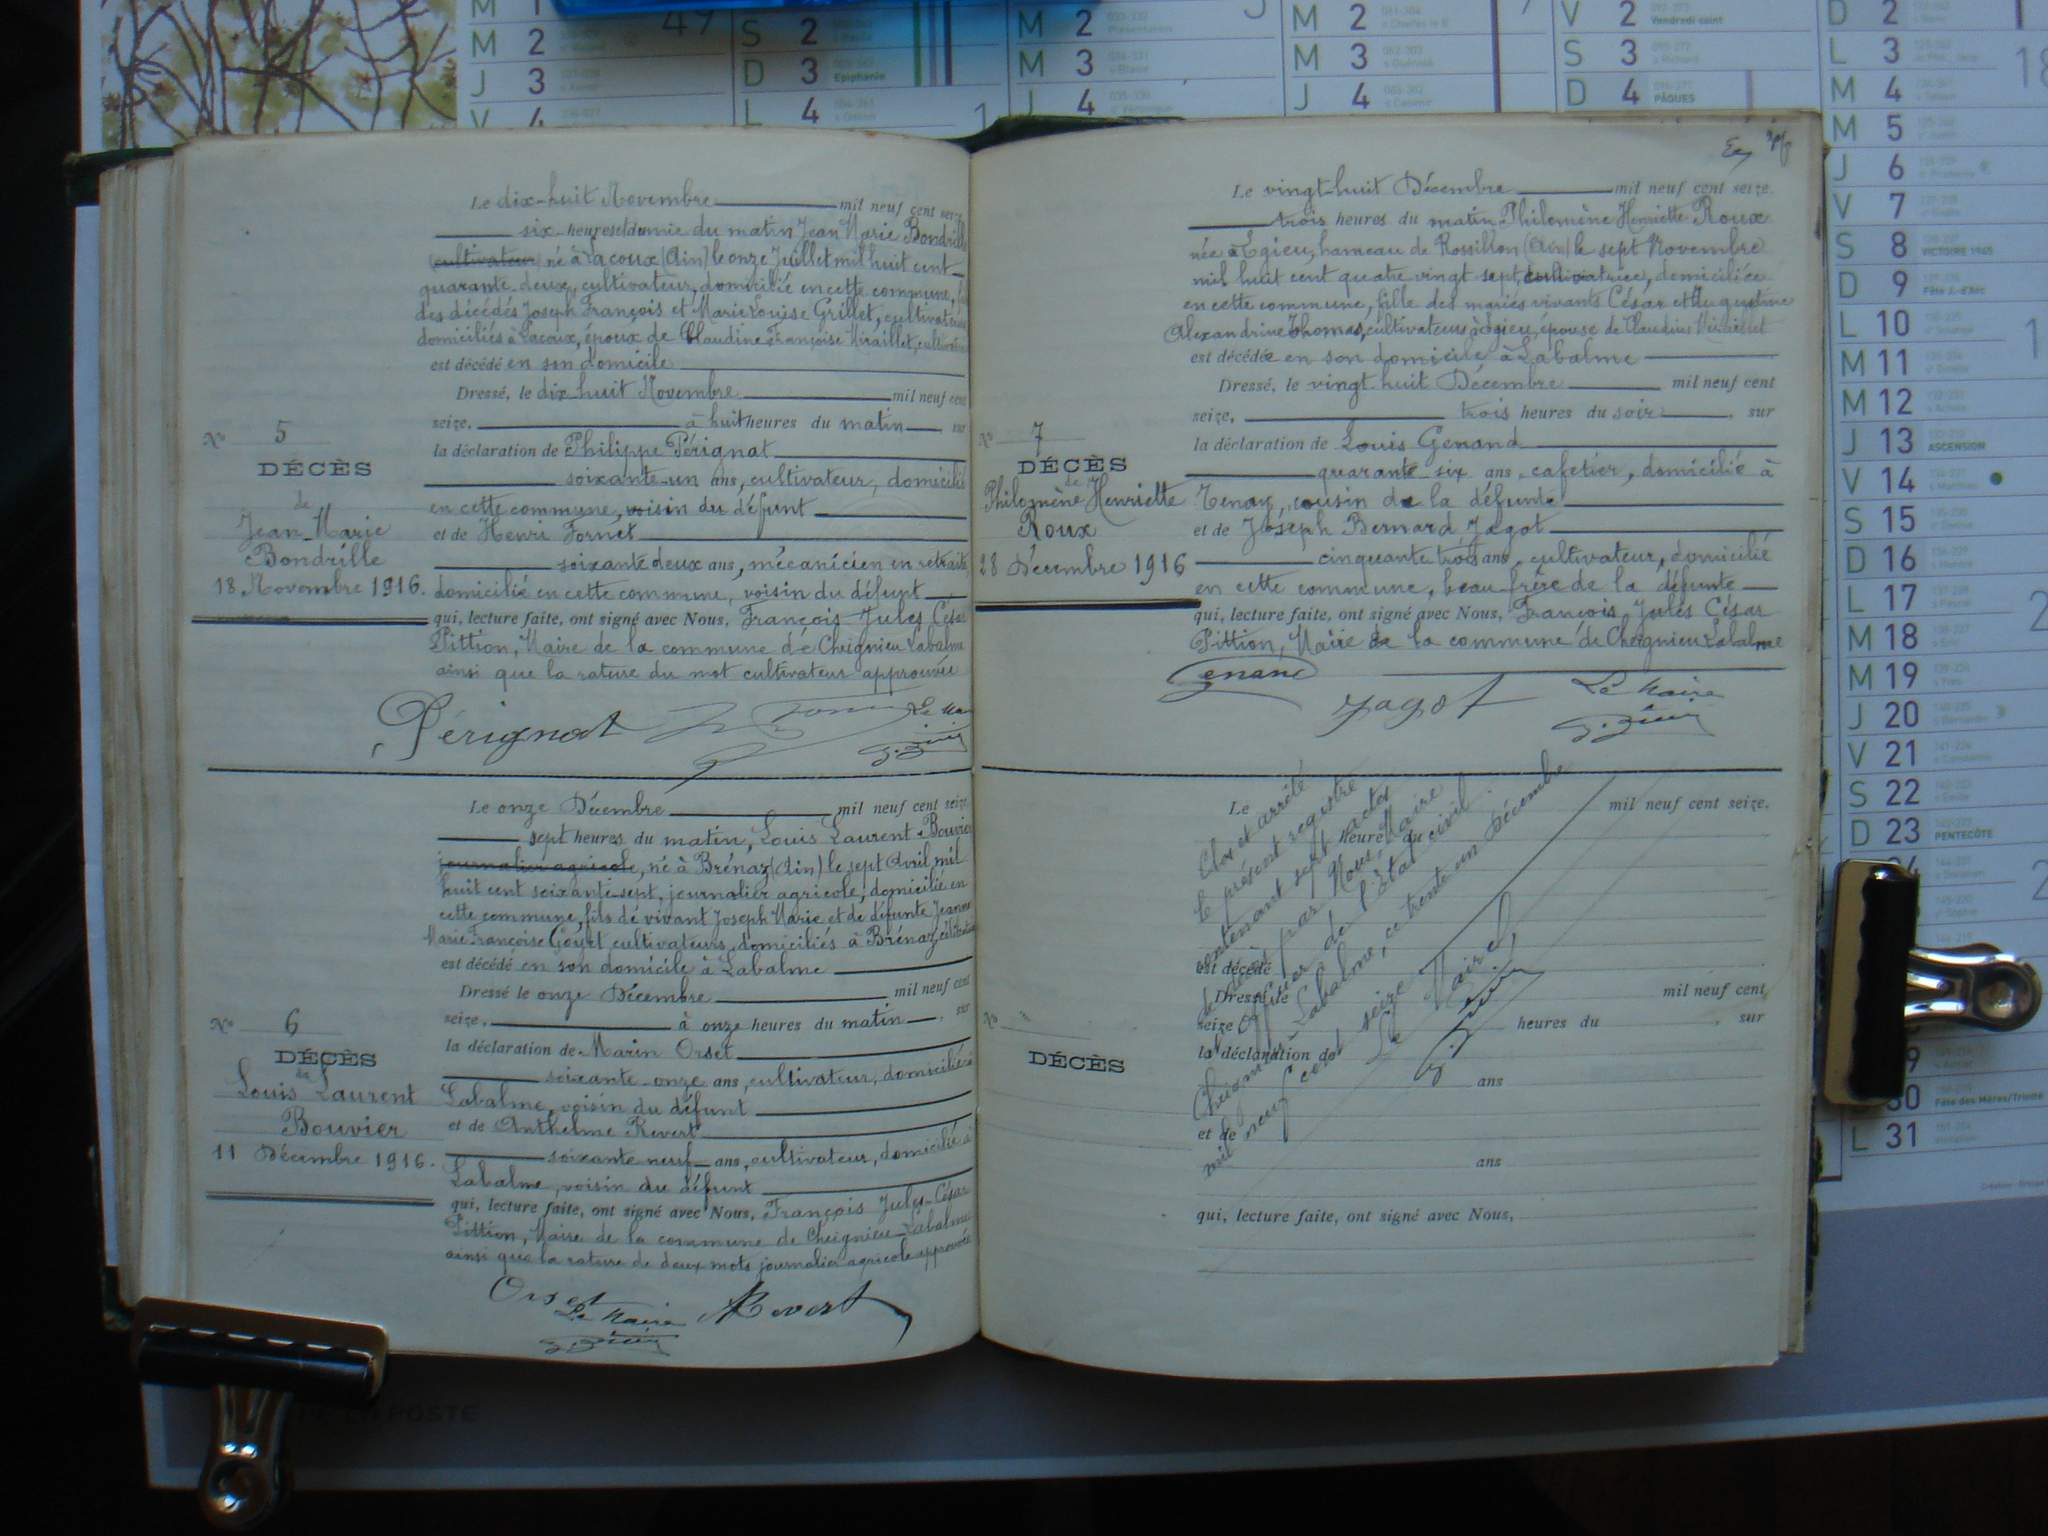 Le dix-huit Novembre mil neuf cent seize
six heures et demie du matin Jean Marie Bondrille
cultivateur né à Lacoux (Ain) le onze Juillet mil huit cent
quarante deux, cultivateur, domicilié en cette commune,
des décédés Joseph François et Marie Louise Grillet, cultivateurs
domiciliés à Lacoux, époux de Claudine Françoise Miraillet,
est décédé en son domicile
Dressé, le dix huit Novembre mil neuf cent
seize, à huit heures du matin sur
la déclaration de Philippe Pérignat
soixante-un ans, cultivateur, domicilié
en cette commune, voisin du défunt
et de Henri Fornet
soixante deux ans, mécanicien en retraite,
domicilié en cette commune, voisin du défunt
qui, lecture faite, ont signé avec Nous, François Jules César
Pittion, Maire de la commune de Cheignieu Labalme
ainsi que la rature du mot cultivateur approuvée
Pérignat
Le Maire
No 5
DÉCÈS
de
Jean-Marie
Bondrille
18 Novembre 1916.
Le onze Décembre mil neuf cent seize,
sept heures du matin, Louis Laurent Bouvier
journalier agricole, né à Brénaz (Ain) le sept Avril mil
huit cent soixante-sept, journalier agricole, domicilié en
cette commune, fils de vivant Joseph Marie et de défunte Jeanne
Marie Françoise Goyet cultivateurs, domiciliés à Brénaz, célibataire
est décédé en son domicile à Labalme
Dressé le onze Décembre mil neuf cent
seize, à onze heures du matin, sur
la déclaration de Marin Orset
soixante-onze ans, cultivateur, domicilié à
Labalme, voisin du défunt
et de Anthelme Revert
soixante neuf ans, cultivateur, domicilié à
Labalme, voisin du défunt
qui, lecture faite, ont signé avec Nous, François Jules-César
Pittion, Maire de la commune de Cheignieu-Labalme
ainsi que la rature de deux mots journalier agricole approuvée
Orset
Le Maire
Revert
No 6
DÉCÈS
de
Louis Laurent
Bouvier
11 Décembre 1916.
Le vingt-huit Décembre mil neuf cent seize.
trois heures du matin Philomène Henriette Roux
née à Egieu, hameau de Rossillon (Ain) le sept Novembre
mil huit cent quatre vingt sept, cultivatrice, domiciliée
en cette commune, fille des mariés vivants César et Augustine
Alexandrine Thomas, cultivateurs à Egieu, épouse de Claudius Miraillet
est décédée en son domicile à Labalme
Dressé, le vingt huit Décembre mil neuf cent
seize, trois heures du soir, sur
la déclaration de Louis Genand
quarante six ans, cafetier, domicilié à
Tenay, cousin de la défunte
et de Joseph Bernard Jagot
cinquante trois ans, cultivateur, domicilié
en cette commune, beau frère de la défunte
qui, lecture faite, ont signé avec Nous, François Jules César
Pittion, Maire de la commune de Cheignieu Labalme
Genand
Jagot
Le Maire
No 7
DÉCÈS
de
Philomène Henriette
Roux
28 Décembre 1916
Le mil neuf cent seize.
heures du
est décédé
Dressé, le mil neuf cent
seize heures du , sur
la déclaration de
ans
et de
ans
qui, lecture faite, ont signé avec Nous,
No
DÉCÈS
Clos et arrêté
le présent registre
contenant sept actes
de décès par Nous, Maire
Officier de l'état civil.
Cheignieu-Labalme, ce trente un Décembre
mil neuf cent seize
Le Maire,
M 1
M 2
J 3
V 4
49
S 2
D 3 Epiphanie
L 4
M 2
M 3
J 4
M 2
M 3
J 4
V 2 Vendredi saint
S 3
D 4 PÂQUES
D 2
L 3
M 4
M 5
J 6
V 7
S 8 VICTOIRE 1945
D 9 Fête J.-d'Arc
L 10
M 11
M 12
J 13 ASCENSION
V 14
S 15
D 16
L 17
M 18
M 19
J 20
V 21
S 22
D 23 PENTECÔTE
30 Fête des Mères/Trinité
L 31
LA POSTE